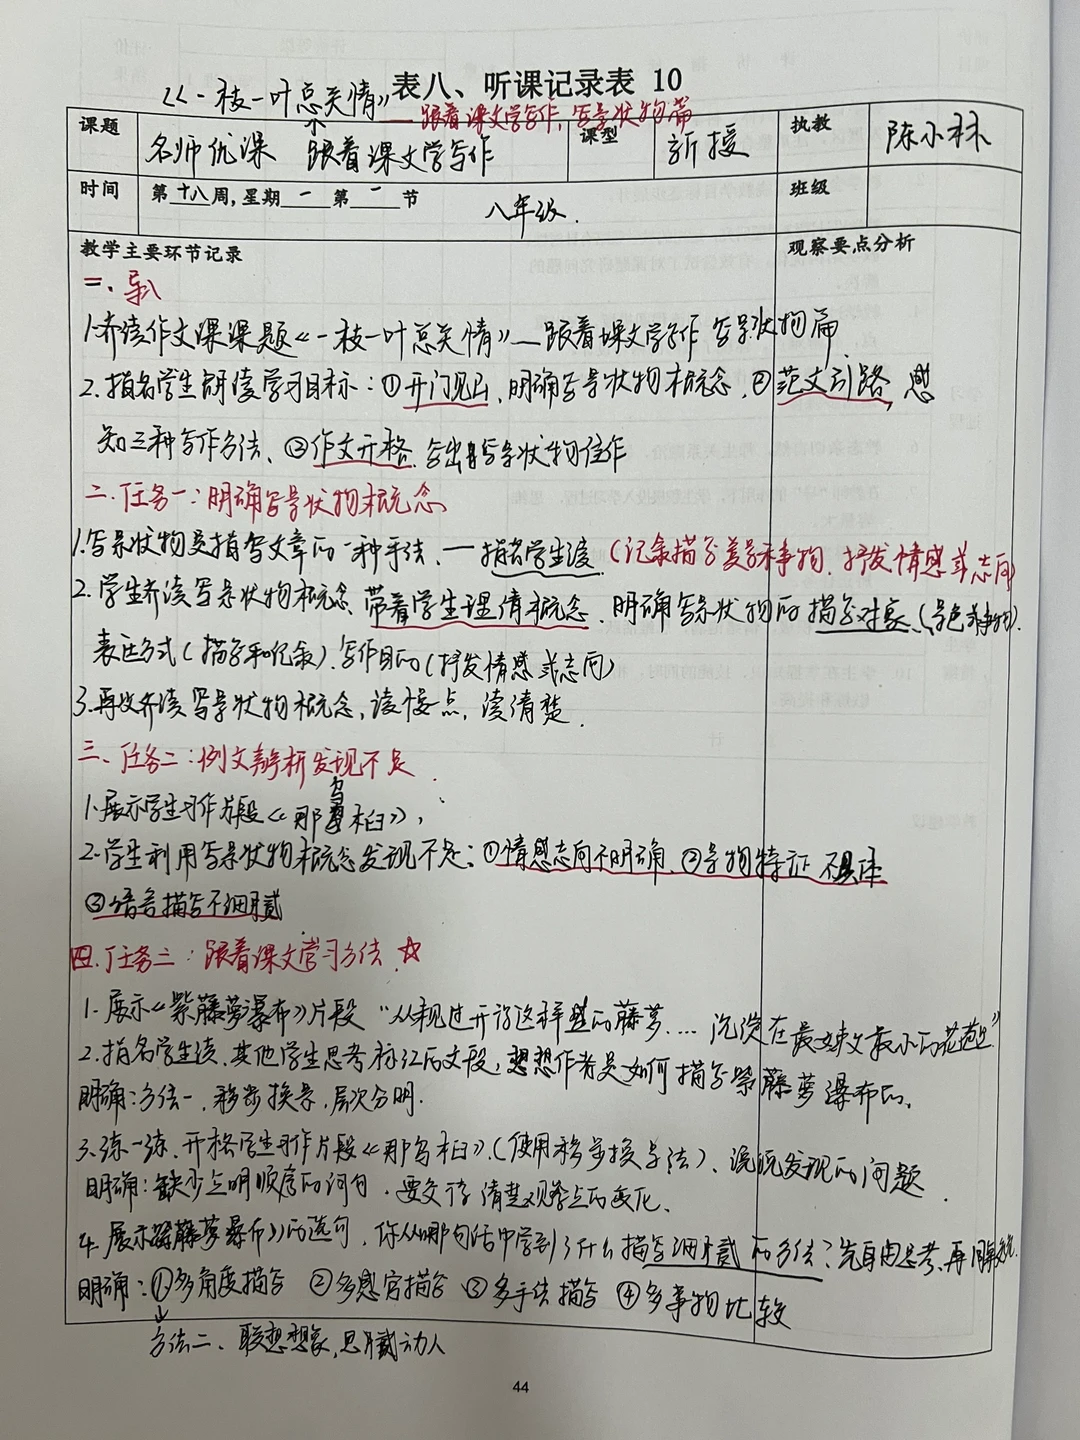 表八、听课记录表 10
《一枝一叶总关情》——跟着课文学写作,写景状物篇
课题 名师优课 跟着课文学写作 课型 新授 执教 陈小林
时间 第十八周,星期一 第一节 八年级. 班级
教学主要环节记录 观察要点分析
一、导入
1.齐读作文课课题《一枝一叶总关情》—跟着课文学写作 写景状物篇
2.指名学生朗读学习目标:①开门见山,明确写景状物概念,②范文引路,感
知三种写作方法、③作文升格,写出写景状物佳作
二、任务一:明确写景状物概念
1.写景状物是指写文章的一种手法、—指名学生读(记录描写美景和事物、抒发情感或志向)
2.学生齐读写景状物概念、带着学生理清概念、明确写景状物的描写对象、(景色或事物)、
表达方式(描写和记录)、写作目的(抒发情感或志向)
3.再次齐读写景状物概念,读慢点,读清楚.
三、任务二:例文辨析发现不足
1.展示学生习作片段《那乌桕》,
2.学生利用写景状物概念发现不足:①情感志向不明确、②景物特征不具体
③语言描写不细腻
四、任务三:跟着课文学习方法.☆
1.展示《紫藤萝瀑布》片段“从未见过开得这样盛的藤萝....沉淀在最好"
2.指名学生读、其他学生思考标红的文段,想想作者是如何描写紫藤萝瀑布的、
明确:方法一、移步换景,层次分明.
3.练一练、升格学生习作片段《那乌桕》、(使用移步换景法)、说说发现的问题.
明确:缺少点明顺序的词句、要交待清楚观察点的变化、
4.展示《紫藤萝瀑布》的选句,你从哪句话中学到了什么描写细腻的方法?先自由思考、再
明确:①多角度描写 ②多感官描写 ③多手法描写 ④多事物比较
方法二、联想想象,思腻动人
44